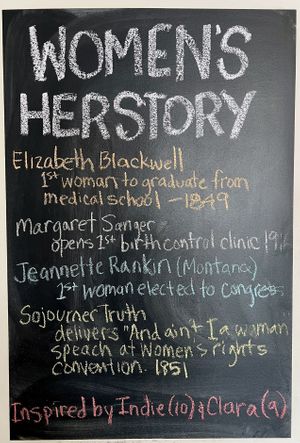 WOMEN'S
HERSTORY
Elizabeth Blackwell
1st woman to graduate from
medical school - 1849
Margaret Sanger
opens 1st birth control clinic 1916
Jeannette Rankin (Montana)
1st woman elected to congress
Sojourner Truth
delivers "And ain't I a woman
speach at Women's rights
convention. 1851
Inspired by Indie (10) & Clara (9)